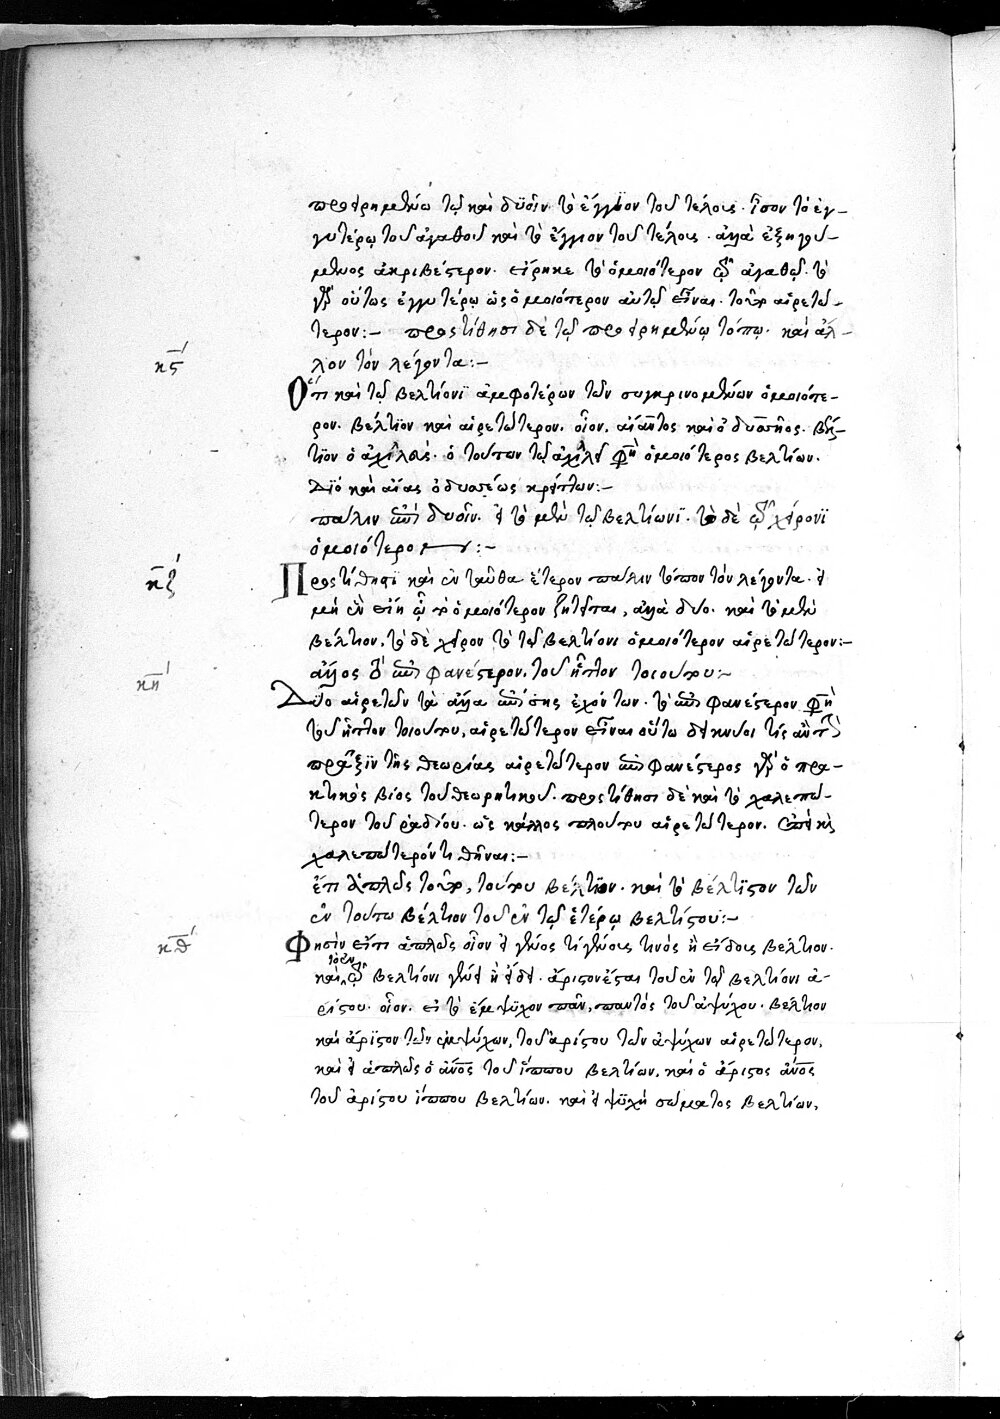 προειρημένω τῶ καὶ δυοῖν τὸ ἔγγιον τοῦ τέλους. ἴσον τὸ ἐγ-
γυτέρω τοῦ ἀγαθοῦ καὶ τὸ ἔγγιον τοῦ τέλους. ἀλλὰ ἐξηγού-
μενος ἀκριβέστερον. εἴρηκε τὸ ὁμοιότερον τῶ ἀγαθῶ. τὸ
γὰρ οὕτως ἐγγυτέρω ὡς ὁμοιότερον αὐτῶ εἶναι. τοῦτο αἱρετώ-
τερον:- προστίθησι δὲ τῶ προειρημένω τόπω. καὶ ἄλ-
λον τὸν λέγοντα:-
κϛ´ Ὅτι καὶ τῶ βελτίονι ἀμφοτέρων τῶν συγκρινομένων ὁμοιότε-
ρον. βέλτιον καὶ αἱρετώτερον. οἷον. αἴαντος καὶ ὀδυσσέως. βέλ-
τιον ὁ ἀχιλλεύς. ὁ τούτων τῶ ἀχιλλεῖ ὁμοιότερος βελτίων.
Διὸ καὶ αἴας ὀδυσσέως κρείττων:-
πάλιν δυοῖν. εἰ τὸ μὲν τῶ βελτίωνι. τὸ δὲ τῶ χείρονι
ὁμοιότερον:-
κζ´ Προστίθησι καὶ ἐν ταῦθα ἕτερον πάλιν τόπον τὸν λέγοντα. εἰ
μὴ ἓν εἴη ὁμοιότερον ζητεῖται, ἀλλὰ δύο. καὶ τὸ μὲν
βέλτιον, τὸ δὲ χεῖρον τὸ τῶ βελτίονι ὁμοιότερον αἱρετώτερον:-
ἄλλος δ' ἐπιφανέστερον. τοῦ ἧττον τοιούτου:-
κη´ Δύο αἱρετῶν τὰ ἄλλα ἐπίσης ἐχόντων. τὸ ἐπιφανέστερον
τοῦ ἧττον τοιούτου, αἱρετώτερον εἶναι οὕτω δείκνυσι τίς ἂν
πρᾶξιν τῆς θεωρίας αἱρετώτερον ἐπιφανέστερος γὰρ ὁ πρα-
κτικὸς βίος τοῦ θεωρητικοῦ. προστίθησι δὲ καὶ τὸ χαλεπώ-
τερον τοῦ ῥαδίου. ὡς κάλλος πλούτου αἱρετώτερον. ἐπεὶ καὶ
χαλεπώτερόν τι θῆναι:-
ἔτι ἁπλῶς τοῦτο, τούτου βέλτιον. καὶ τὸ βέλτιστον τῶν
ἐν τούτω βέλτιον τοῦ ἐν τῶ ἑτέρω βελτίστου:-
κθ´ Φησὶν εἴ τι ἁπλῶς οἷον εἰ γένος τι γένους τινὸς ἢ εἶδος βέλτιον.
καὶ τὸ ἐν τῶ βελτίονι γένει ἢ εἴδει. ἄριστον ἔσται τοῦ ἐν τῶ βελτίονι ἀ-
ρίστου. οἷον. εἰ τὸ ἔμψυχον πᾶν, παντὸς τοῦ ἀψύχου. βέλτιον
καὶ ἄριστον τῶν ἐμψύχων, τοῦ ἀρίστου τῶν ἀψύχων αἱρετώτερον,
καὶ εἰ ἁπλῶς ὁ ἄνος τοῦ ἵππου βελτίων, καὶ ὁ ἄριστος ἄνος
τοῦ ἀρίστου ἵππου βελτίων. καὶ εἰ ψυχὴ σώματος βελτίων,